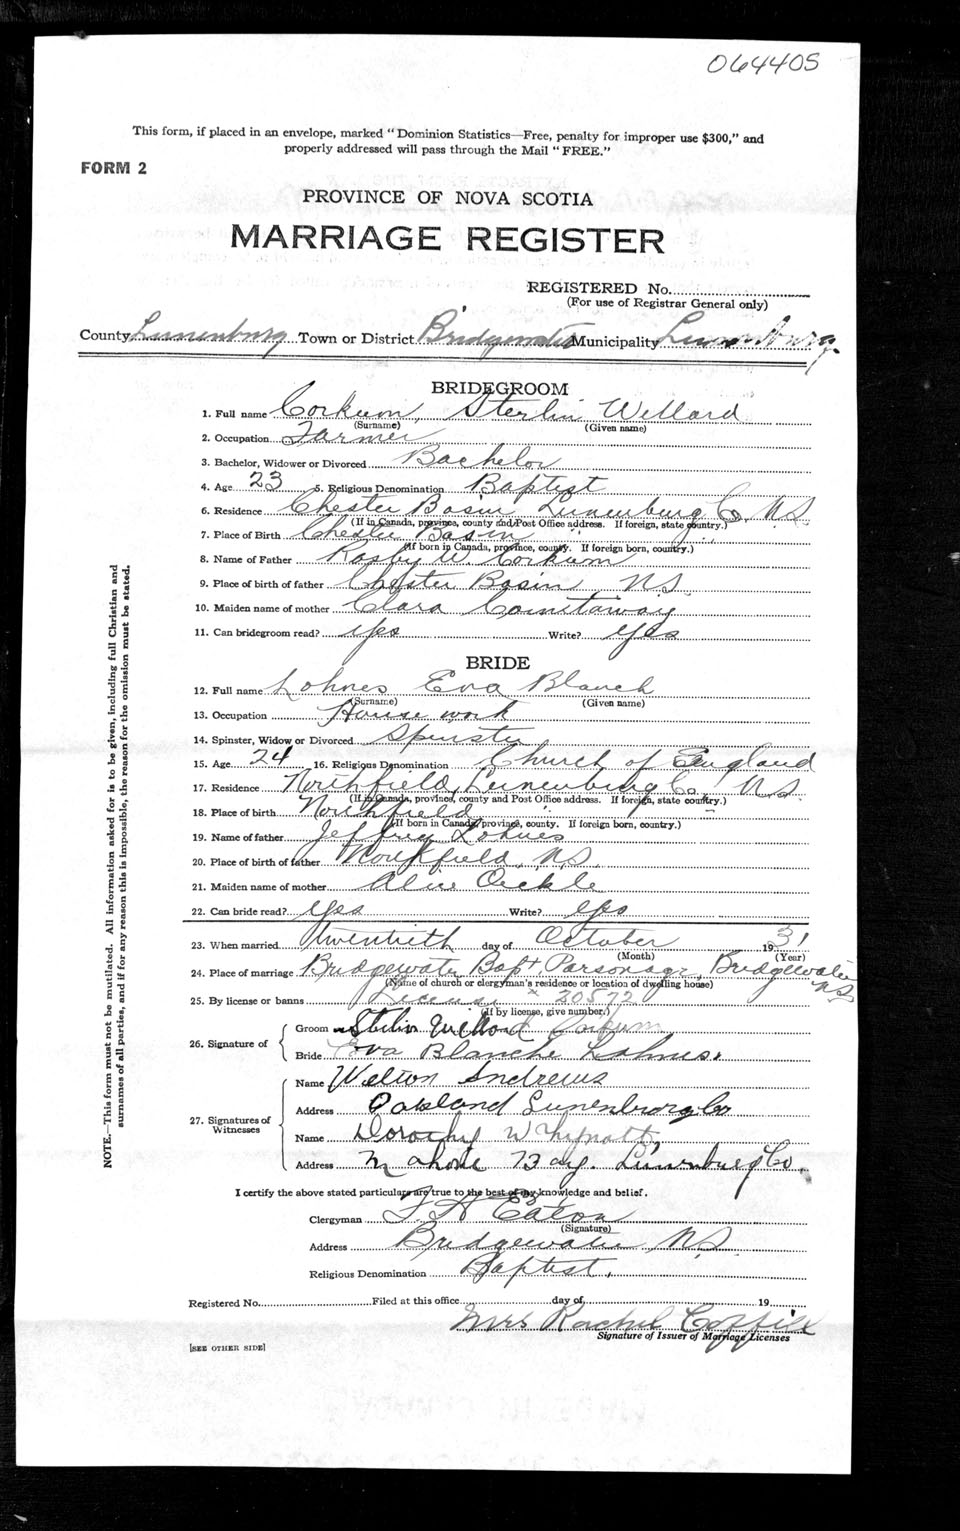 064405
This form, if placed in an envelope, marked "Dominion Statistics—Free, penalty for improper use $300," and
properly addressed will pass through the Mail "FREE."
FORM 2
PROVINCE OF NOVA SCOTIA
MARRIAGE REGISTER
REGISTERED No.
(For use of Registrar General only)
County Lunenburg Town or District Bridgewater Municipality Lunenburg.
BRIDEGROOM
1. Full name Corkum, Sterlin Willard
(Surname) (Given name)
2. Occupation Farmer
3. Bachelor, Widower or Divorced Bachelor
4. Age 23 5. Religious Denomination Baptist
6. Residence Chester Basin Lunenburg Co. N.S.
(If in Canada, province, county and Post Office address. If foreign, state country.)
7. Place of Birth Chester Basin
(If born in Canada, province, county. If foreign born, country.)
8. Name of Father W. Corkum
9. Place of birth of father Chester Basin N.S.
10. Maiden name of mother Clara
11. Can bridegroom read? yes Write? yes
BRIDE
12. Full name Lohnes Eva Blanch
(Surname) (Given name)
13. Occupation House work
14. Spinster, Widow or Divorced Spinster
15. Age 24 16. Religious Denomination Church of England
17. Residence Northfield, Lunenburg Co., N.S.
(If in Canada, province, county and Post Office address. If foreign, state country.)
18. Place of birth Northfield
(If born in Canada, province, county. If foreign born, country.)
19. Name of father Jeffrey Lohnes
20. Place of birth of father Northfield, N.S.
21. Maiden name of mother Alice
22. Can bride read? yes Write? yes
23. When married Twentieth day of October 1931
(Month) (Year)
24. Place of marriage Bridgewater Bapt. Parsonage, Bridgewater
N.S.
(Name of church or clergyman's residence or location of dwelling house)
25. By license or banns License 20572
(If by license, give number.)
26. Signature of
Groom Sterlin Willard Corkum
Bride Eva Blanche Lohnes.
27. Signatures of
Witnesses
Name Welton Andrews
Address Oakland Lunenburg Co
Name Dorothy
Address Mahone Bay. Lunenburg Co.
I certify the above stated particulars are true to the best of my knowledge and belief.
Clergyman Eaton
(Signature)
Address Bridgewater N.S.
Religious Denomination Baptist.
Registered No. Filed at this office day of 19
Mrs Rachel Coffill
Signature of Issuer of Marriage Licenses
[SEE OTHER SIDE]
NOTE.—This form must not be mutilated. All information asked for is to be given, including full Christian and
surnames of all parties, and if for any reason this is impossible, the reason for the omission must be stated.